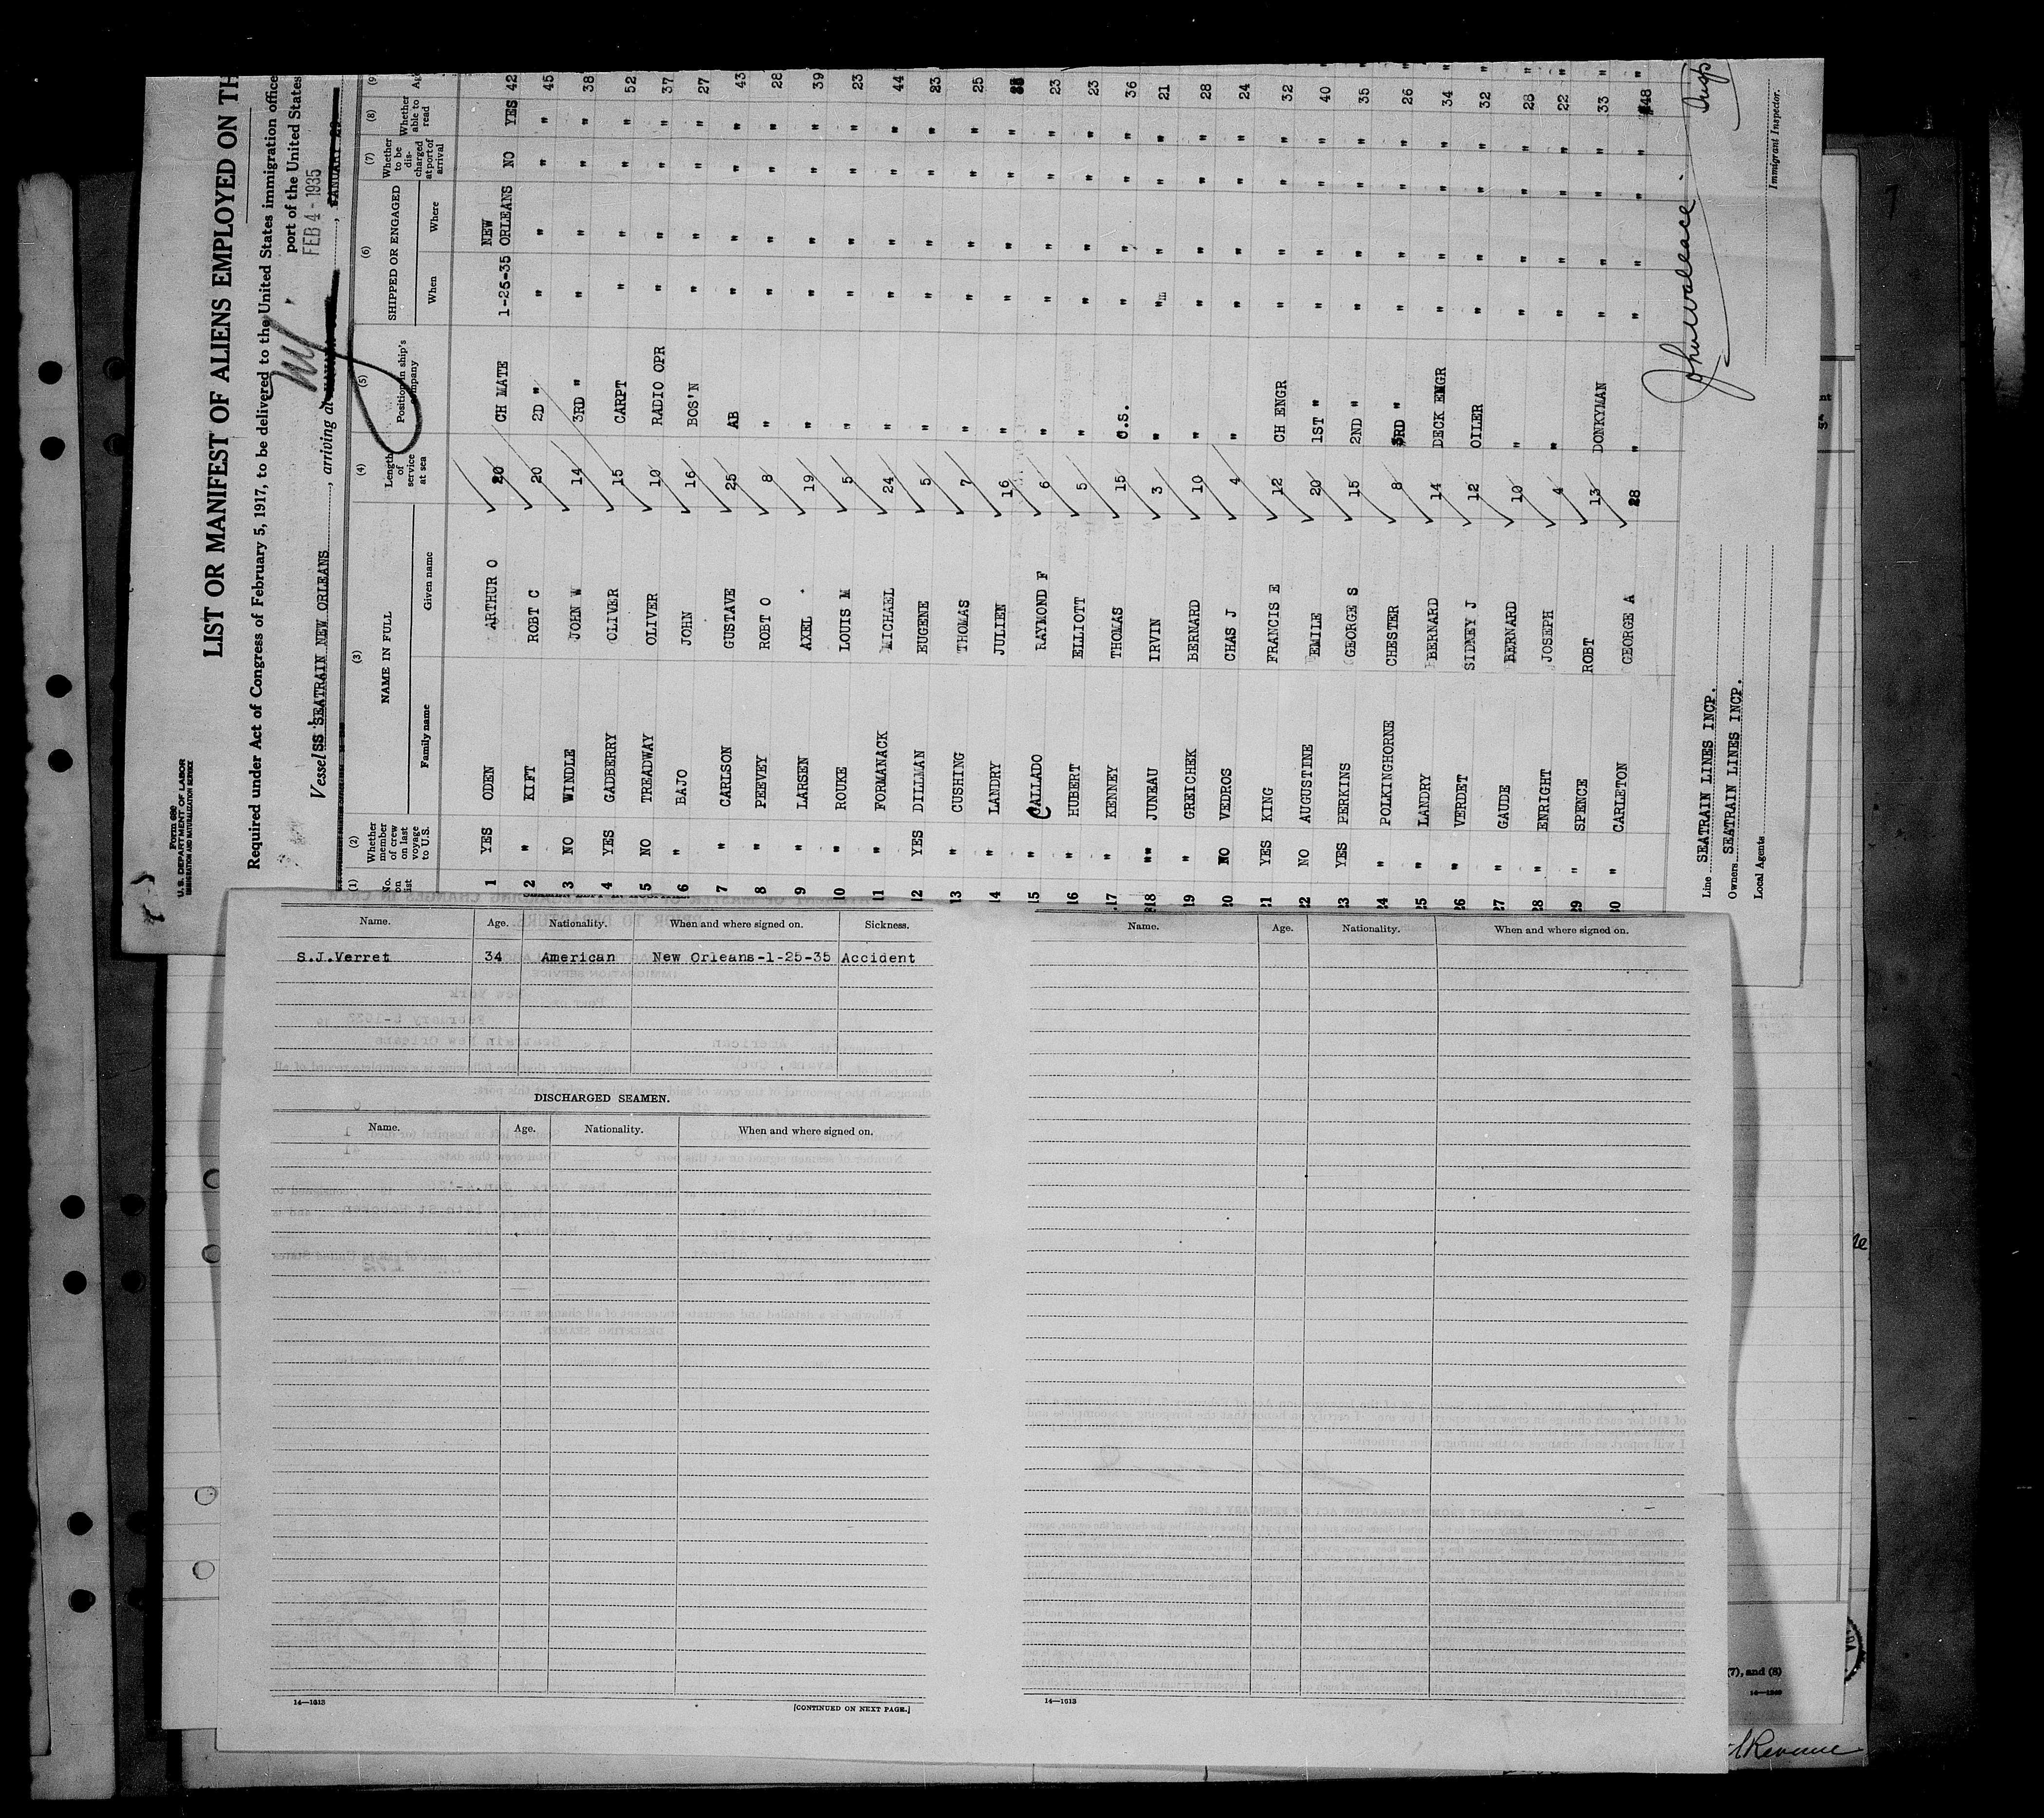 Form 680
U. S. DEPARTMENT OF LABOR
IMMIGRATION AND NATURALIZATION SERVICE
LIST OR MANIFEST OF ALIENS EMPLOYED ON TH
Required under Act of Congress of February 5, 1917, to be delivered to the United States immigration office
port of the United States
FEB 4 - 1935
Vessel SS SEATRAIN NEW ORLEANS, arriving at , JANUARY 29
(1) (2) (3) (4) (5) (6) (7) (8) (9
No. on list Whether member of crew on last voyage to U.S. NAME IN FULL Family name Given name Length of service at sea Position in ship's company SHIPPED OR ENGAGED When Where Whether to be discharged at port of arrival Whether able to read Ag
1 YES ODEN ARTHUR O 20 CH MATE 1-25-35 NEW ORLEANS NO YES 42
2 " KIFT ROBT C 20 2D " " " " " 45
3 NO WINDLE JOHN W 14 3RD " " " " " 38
4 YES GADBERRY OLIVER 15 CARPT " " " " 52
5 NO TREADWAY OLIVER 10 RADIO OPR " " " " 37
6 " BAJO JOHN 16 BOS'N " " " " 27
7 " CARLSON GUSTAVE 25 AB " " " " 43
8 " PEEVEY ROBT O 8 " " " " " 28
9 " LARSEN AXEL 19 " " " " " 39
10 " ROUKE LOUIS M 5 " " " " " 23
11 " FORMANACK MICHAEL 24 " " " " " 44
12 YES DILLMAN EUGENE 5 " " " " " 23
13 " CUSHING THOMAS 7 " " " " " 25
14 " LANDRY JULIEN 16 " " " " "
15 " CALLADO RAYMOND F 6 " " " " " 23
16 " HUBERT ELLIOTT 5 " " " " " 23
17 " KENNEY THOMAS 15 O.S. " " " " 36
18 " JUNEAU IRVIN 3 " " " " " 21
19 " GREICHEK BERNARD 10 " " " " " 28
20 NO VEDROS CHAS J 4 " " " " " 24
21 YES KING FRANCIS E 12 CH ENGR " " " " 32
22 NO AUGUSTINE EMILE 20 1ST " " " " " 40
23 YES PERKINS GEORGE S 15 2ND " " " " " 35
24 " POLKINGHORNE CHESTER 8 3RD " " " " " 26
25 " LANDRY BERNARD 14 DECK ENGR " " " " 34
26 " VERDET SIDNEY J 12 OILER " " " " 32
27 " GAUDE BERNARD 10 " " " " " 28
28 " ENRIGHT JOSEPH 4 " " " " " 22
29 " SPENCE ROBT 13 DONKYMAN " " " " 33
30 " CARLETON GEORGE A 28 " " " " " 48
Line SEATRAIN LINES INCP.
Owners SEATRAIN LINES INCP.
Local Agents
John Wallace
Immigrant Inspector.
Name. Age. Nationality. When and where signed on. Sickness.
S.J.Verret 34 American New Orleans-1-25-35 Accident
DISCHARGED SEAMEN.
Name. Age. Nationality. When and where signed on.
14—1613
[CONTINUED ON NEXT PAGE.]
Name. Age. Nationality. When and where signed on.
14—1613
(7), and (8)